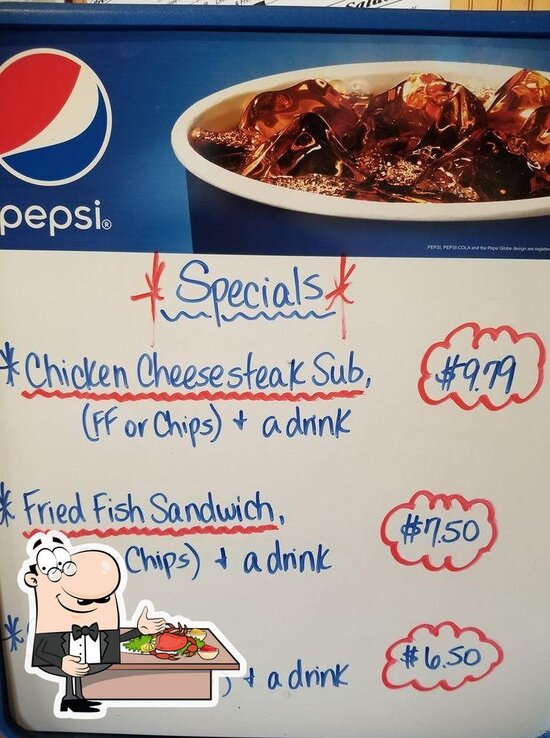 pepsi®
PEPSI, PEPSI-COLA and the Pepsi Globe design are
* Specials *
* Chicken Cheesesteak Sub, $9.79
(FF or Chips) + a drink
* Fried Fish Sandwich, $7.50
Chips) + a drink
* $6.50
) + a drink